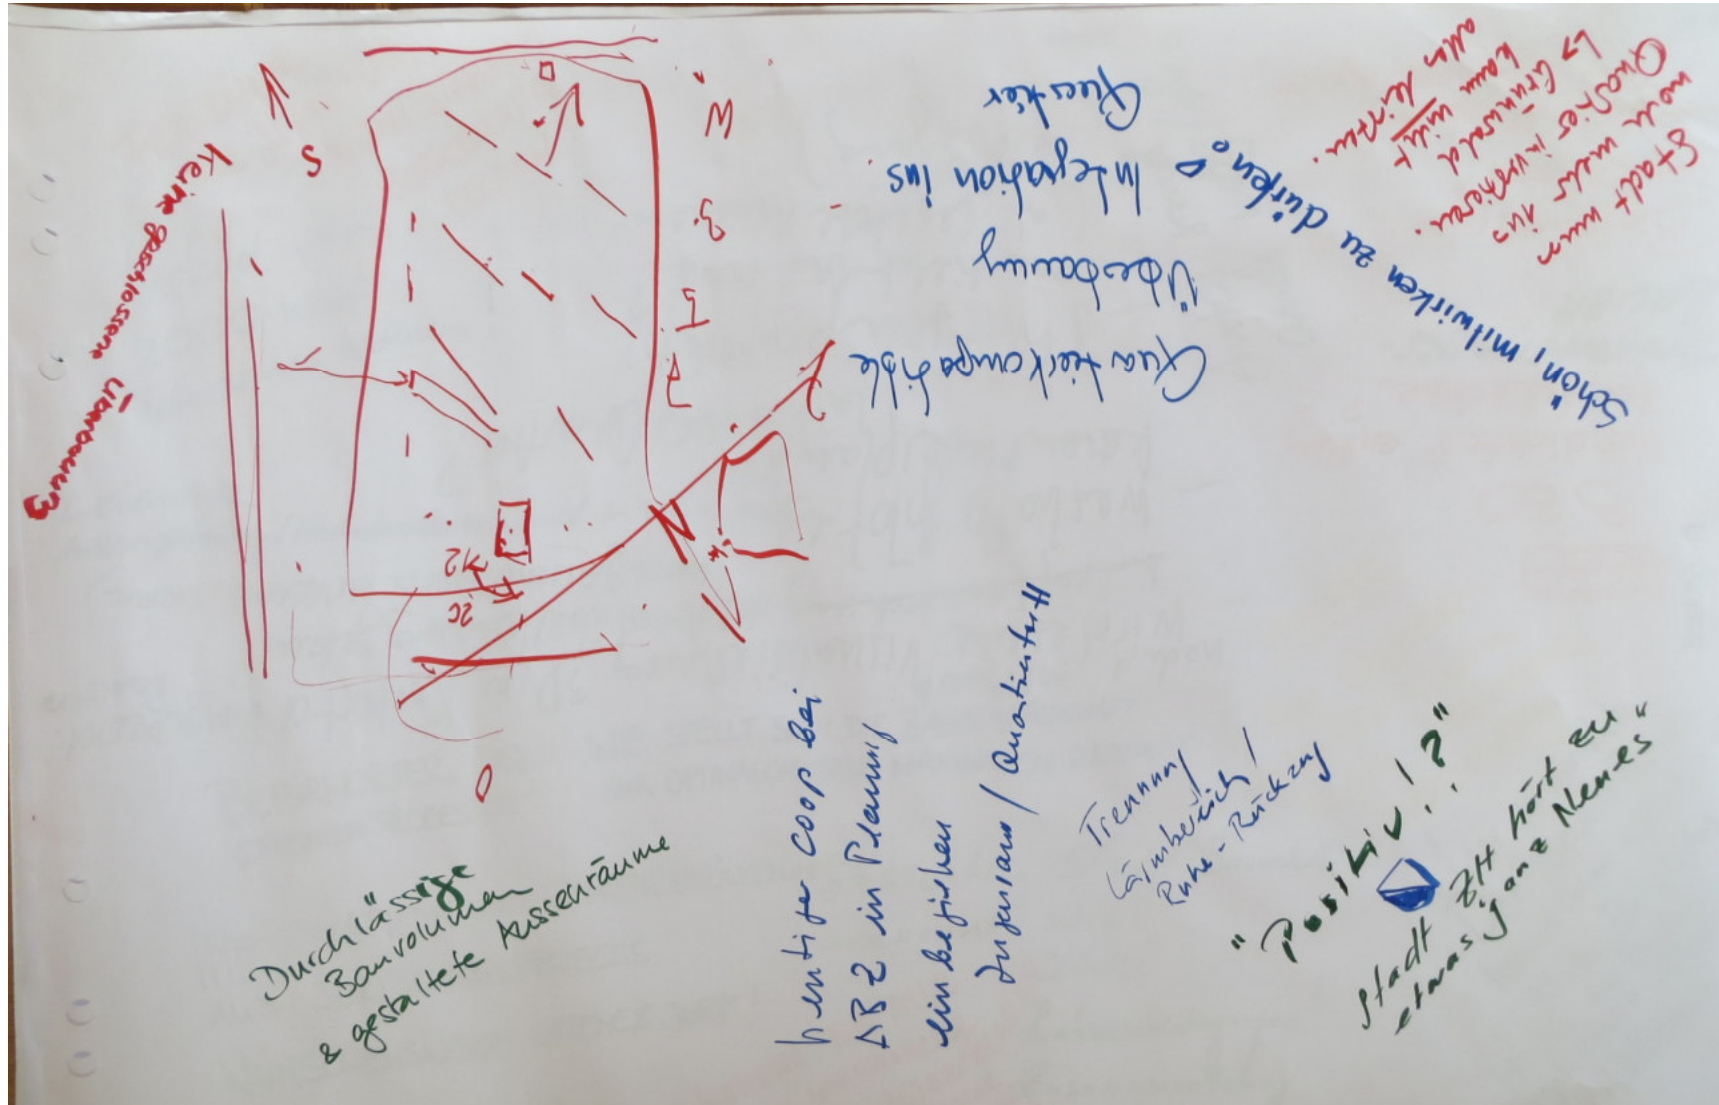 Keine geschlossene Überbauung
S
W
3.
5
7
N
12
20
O
Quartierkompatible
Überbauung
Integration ins
Quartier
Schön, mitwirken zu dürfen.
Stadt muss
noch mehr ins
Quartier investieren.
↳ Grünwald
kann nicht
alles leisten.
Durchlässige
Bauvolumen
& gestaltete Aussenräume
heutiger coop bei
ABZ in Planung
einbeziehen
Trennung
Lärmbereich/
Ruhe-Rückzug
"Positiv!?"
Stadt ZH hört zu
etwas ganz Neues"